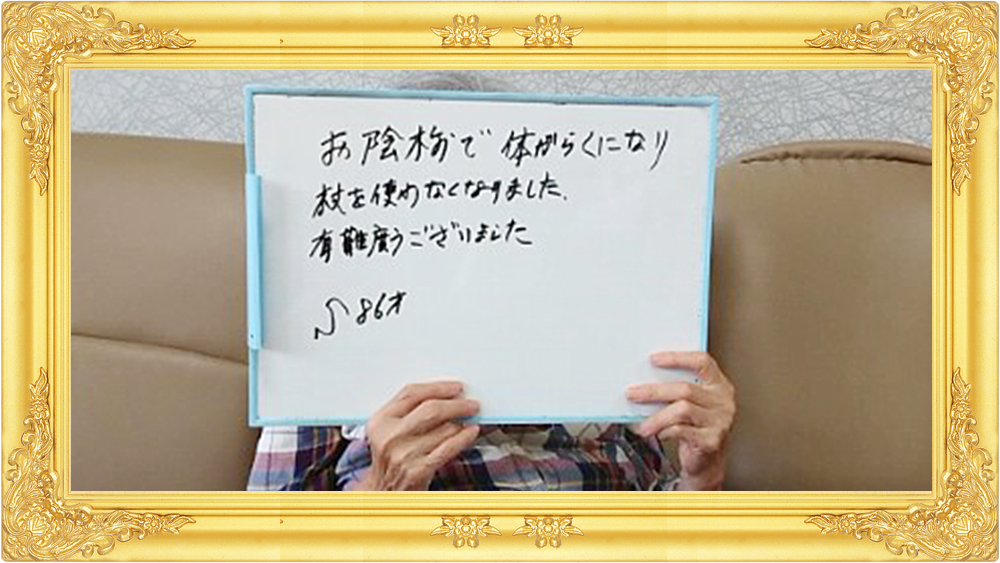 お陰様で体がらくになり
杖を使わなくなりました.
有難度うございました
S 86才